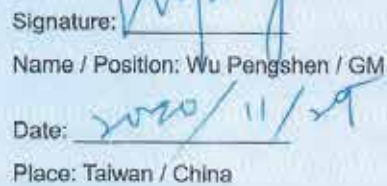 Signature:
Name / Position: Wu Pengshen / GM
Date: 2020/11/29
Place: Taiwan / China